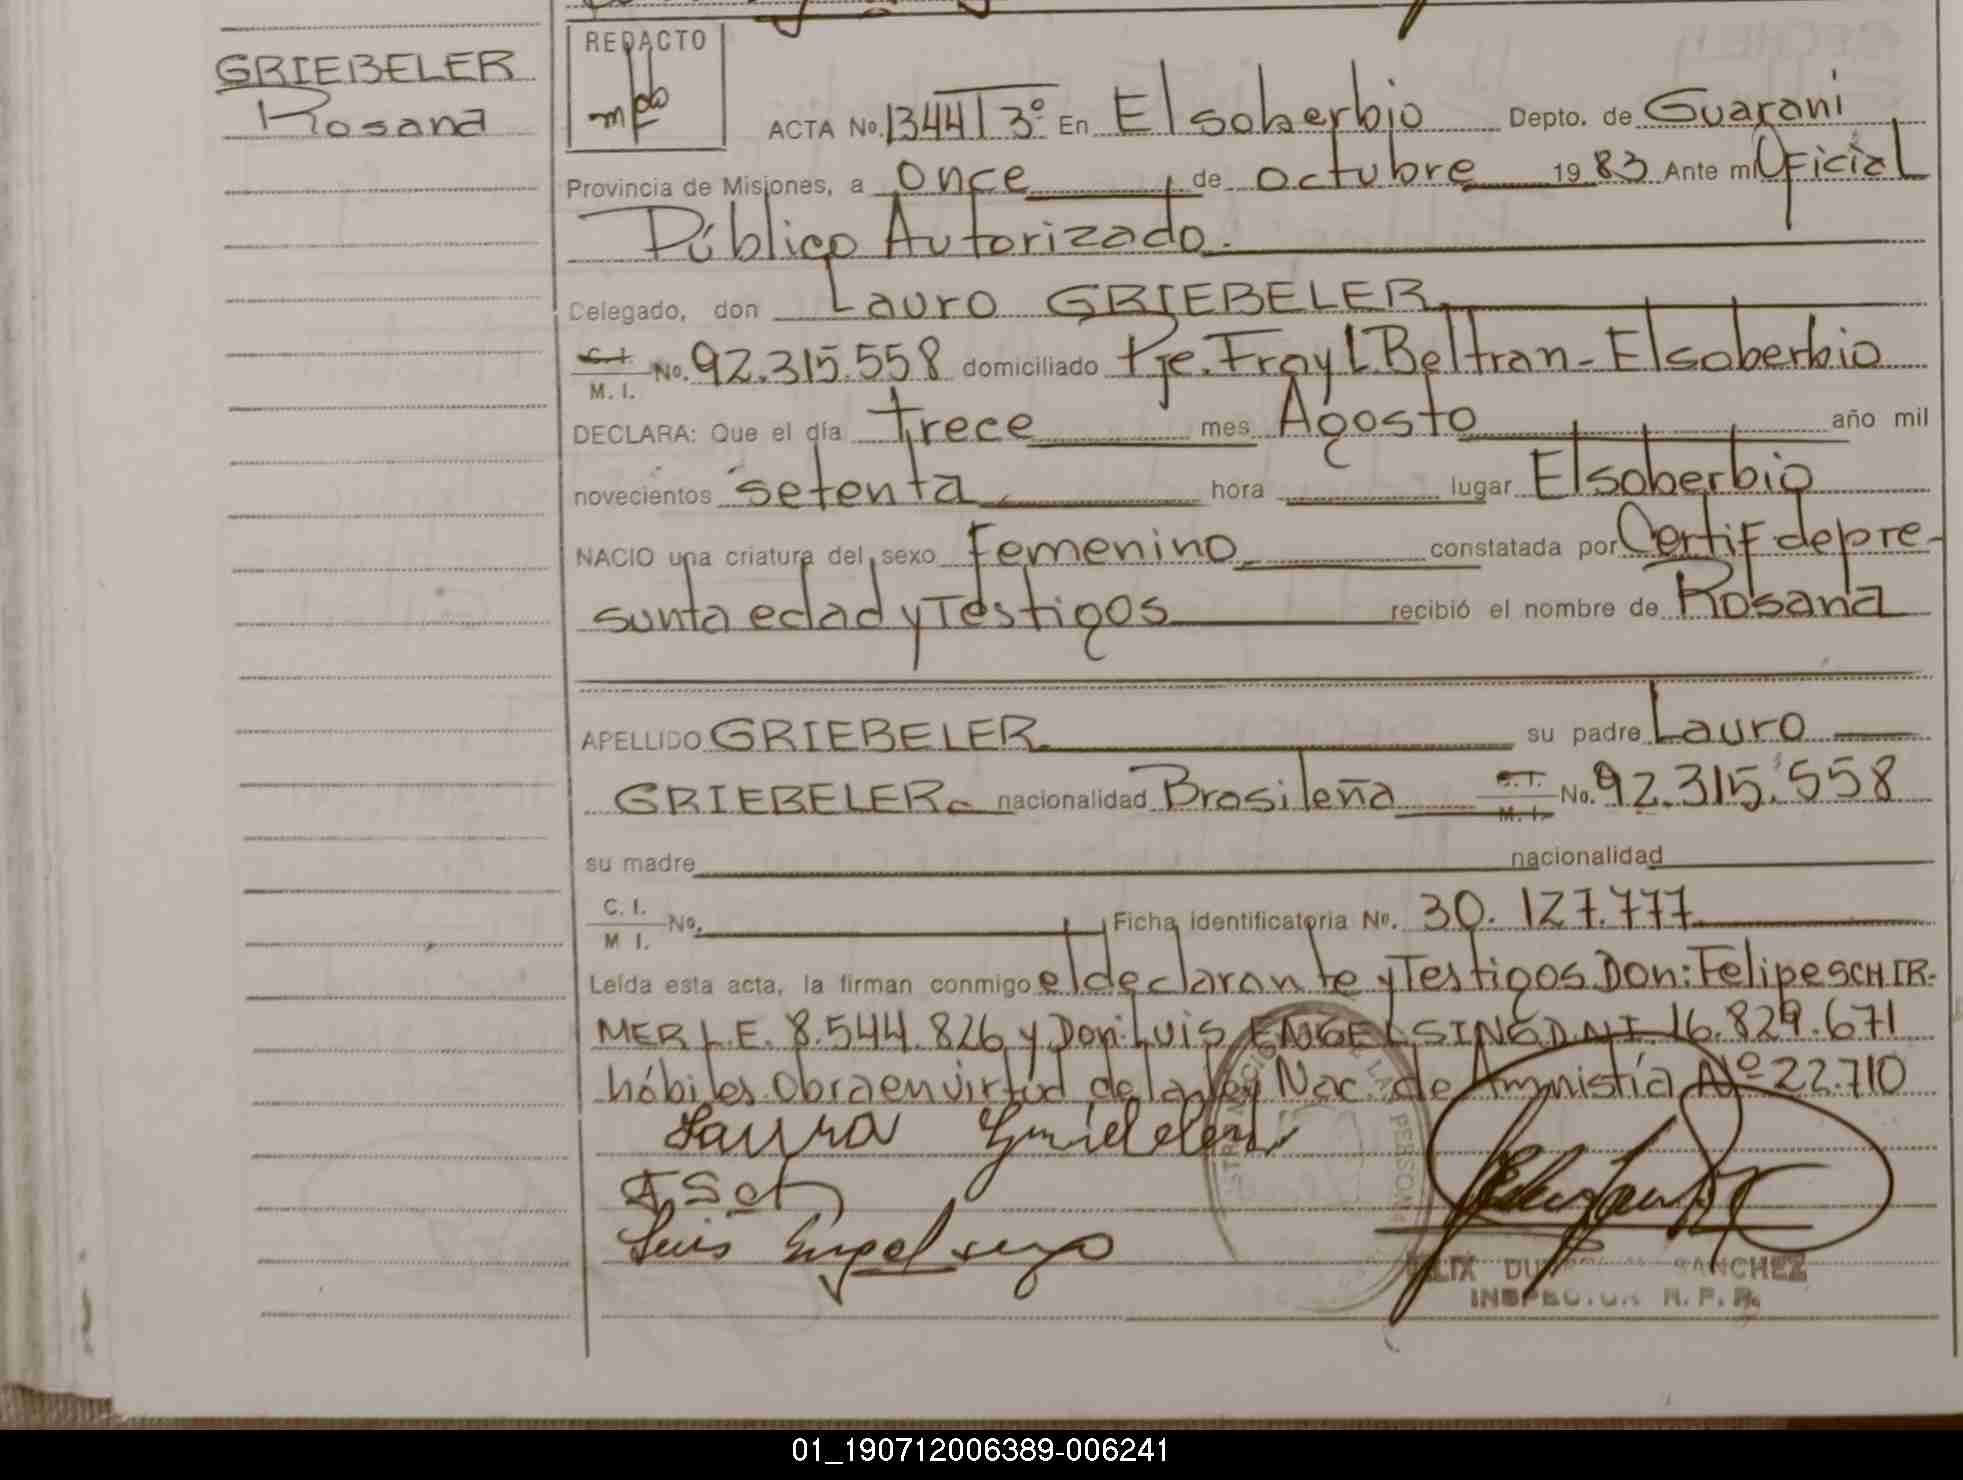 GRIEBELER
Rosana
REDACTO
ACTA No. 1344 T 3º En El soberbio Depto. de Guarani
Provincia de Misiones, a once de octubre 1983 Ante mi Oficial
Público Autorizado.
Celegado, don Lauro GRIEBELER
C.I. M.I. No. 92.315.558 domiciliado Pje. Fray L. Beltran - El soberbio
DECLARA: Que el día trece mes Agosto año mil
novecientos setenta hora lugar El soberbio
NACIO una criatura del sexo femenino constatada por Certif de pre-
sunta edad y Testigos recibió el nombre de Rosana
APELLIDO GRIEBELER su padre Lauro
GRIEBELER nacionalidad Brasileña C.I. M.I. No. 92.315.558
su madre nacionalidad
C.I. M I. No. Ficha identificatoria Nº. 30.127.777
Leída esta acta, la firman conmigo el declarante y Testigos Don: Felipe SCHIR-
MER L.E. 8.544.826 y Don: Luis ENGELSING D.N.I. 16.829.671
hábiles. Obra en virtud de la Ley Nac. de Amnistía Nº 22.710
Lauro Griebeler
Luis Engelsing
LA PERSONA
SANCHEZ
INSPECTOR R. P. P.
01_190712006389-006241